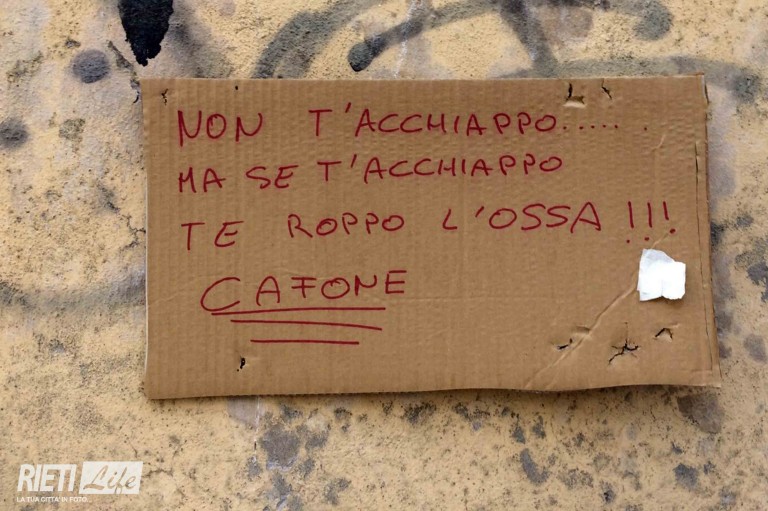 NON T'ACCHIAPPO......
MA SE T'ACCHIAPPO
TE ROPPO L'OSSA !!!
CAFONE
RIETI Life
LA TUA CITTA' IN FOTO...